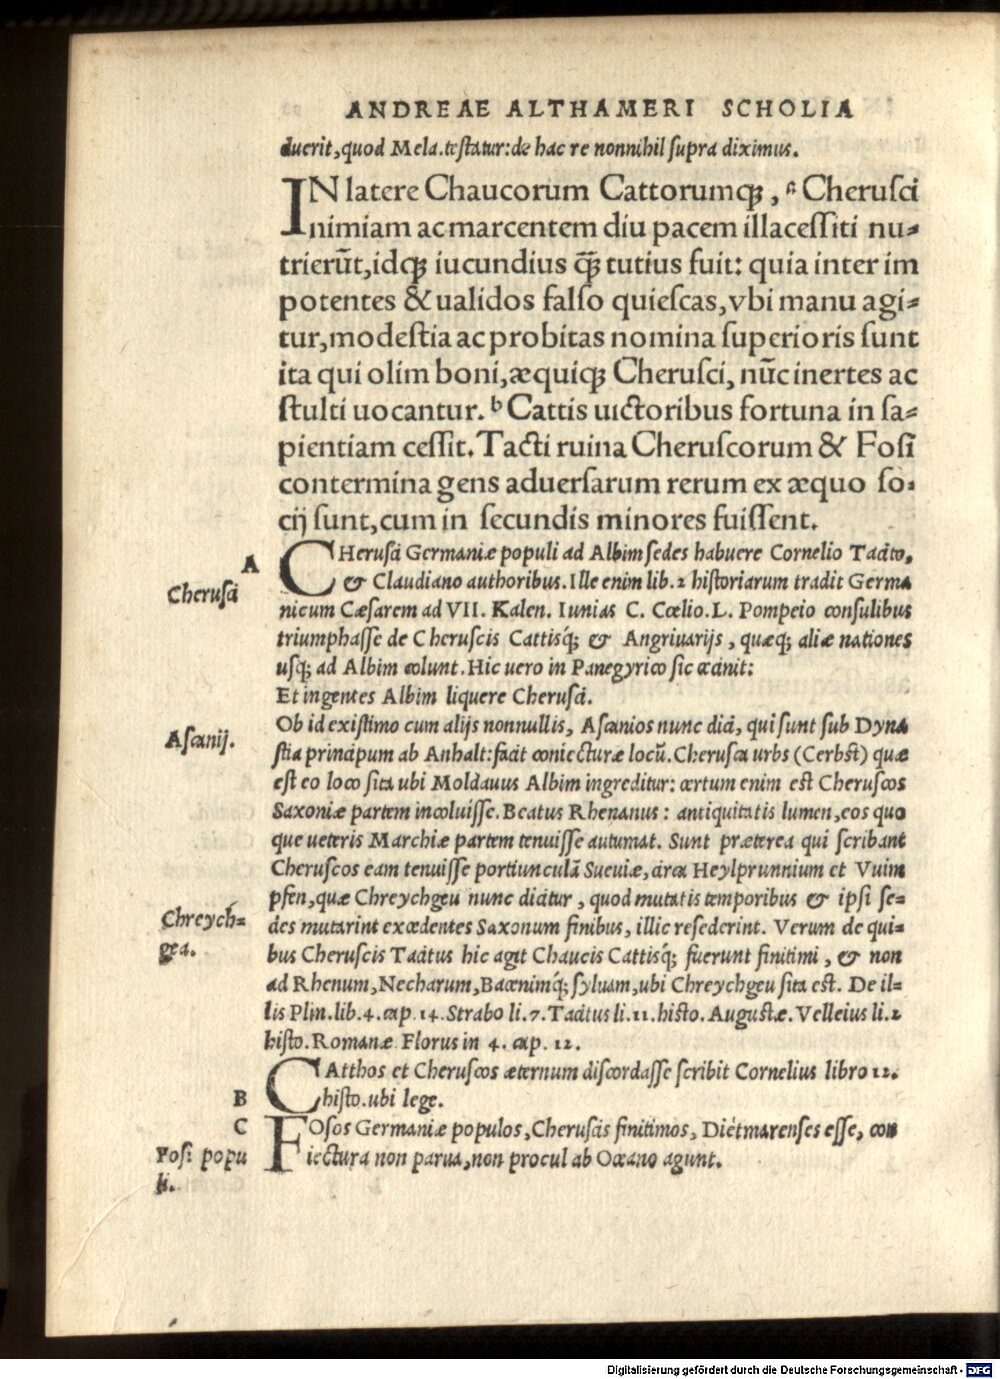 ANDREAE ALTHAMERI SCHOLIA
duerit, quod Mela. testatur: de hac re nonnihil supra diximus.
IN latere Chaucorum Cattorumqꝫ, ᵃ Cherusci
nimiam ac marcentem diu pacem illacessiti nu⸗
trierūt, idqꝫ iucundius q̄ꝫ tutius fuit: quia inter im
potentes & ualidos falso quiescas, vbi manu agi⸗
tur, modestia ac probitas nomina superioris sunt
ita qui olim boni, æquiqꝫ Cherusci, nūc inertes ac
stulti uocantur. ᵇ Cattis uictoribus fortuna in sa⸗
pientiam cessit. Tacti ruina Cheruscorum & Fosī
contermina gens aduersarum rerum ex æquo so⸗
cij sunt, cum in secundis minores fuissent.
A
Cherusci
CHerusci Germaniæ populi ad Albim sedes habuere Cornelio Tacito,
& Claudiano authoribus. Ille enim lib. 2 historiarum tradit Germa
nicum Cæsarem ad VII. Kalen. Iunias C. Cœlio. L. Pompeio consulibus
triumphasse de Cheruscis Cattisq́; & Angriuarijs, quæq; aliæ nationes
usq; ad Albim colunt. Hic uero in Panegyrico sic cæcinit:
Et ingentes Albim liquere Cherusci.
Ascanij.
Ob id existimo cum alijs nonnullis, Ascanios nunc dici, qui sunt sub Dyna
stia principum ab Anhalt: facit coniecturæ locū. Cherusca urbs (Cerbst) quæ
est eo loco sita ubi Moldauus Albim ingreditur: certum enim est Cheruscos
Saxoniæ partem incoluisse. Beatus Rhenanus: antiquitatis lumen, eos quo
que ueteris Marchiæ partem tenuisse autumat. Sunt præterea qui scribant
Cheruscos eam tenuisse portiunculā Sueuiæ, circa Heylprunnium et Vuim
pfen, quæ Chreychgeu nunc dicitur, quod mutatis temporibus & ipsi se⸗
Chreych⸗
gea.
des mutarint excedentes Saxonum finibus, illic resederint. Verum de qui⸗
bus Cheruscis Tacitus hic agit Chaucis Cattisq́; fuerunt finitimi, & non
ad Rhenum, Necharum, Bacenimq́; syluam, ubi Chreychgeu sita est. De il⸗
lis Plin. lib. 4. cap. 14. Strabo li. 7. Tacitus li. 11. histo. Augustæ. Velleius li. 2
histo. Romanæ Florus in 4. cap. 12.
CAtthos et Cheruscos æternum discordasse scribit Cornelius libro 12.
B
histo. ubi lege.
C
FOsos Germaniæ populos, Cheruscis finitimos, Dietmarenses esse, con
Fosi popu
li.
iectura non parua, non procul ab Oceano agunt.
Digitalisierung gefördert durch die Deutsche Forschungsgemeinschaft - DFG